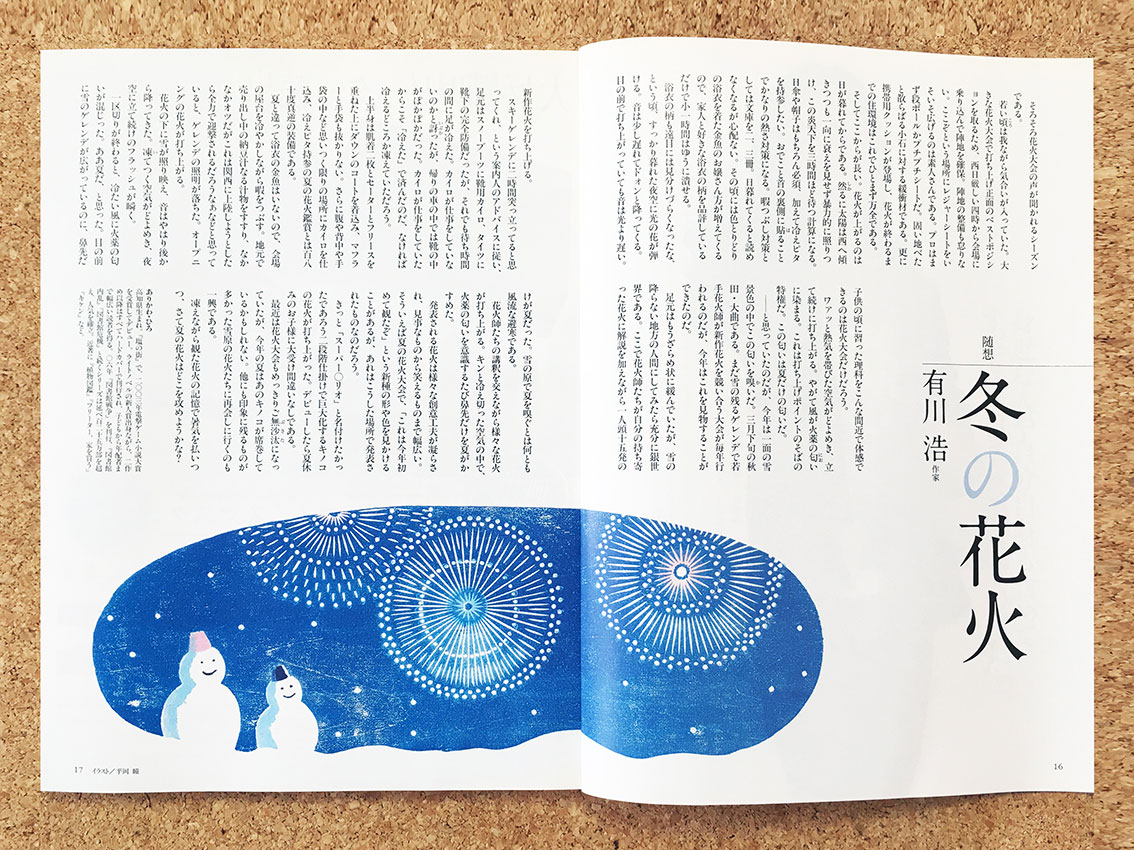 随想
冬の花火
有川 浩 作家
そろそろ花火大会の声が聞かれるシーズン
である。
若い頃は我ながら気合いが入っていた。大
きな花火大会で打ち上げ正面のベストポジシ
ョンを取るため、西日厳しい四時から会場に
乗り込んで陣地を確保。陣地の整備も怠りな
い。ここぞという場所にレジャーシートをい
そいそ広げるのは素人さんである。プロはま
ず段ボールかプチプチシートだ。固い地べた
と散らばる小石に対する緩衝材である。更に
携帯用クッションが登場し、花火が終わるま
での住環境はこれでひとまず万全である。
そしてここからが長い。花火が上がるのは
日が暮れてからである。然るに太陽は西へ傾
きつつも一向に衰えを見せず暴力的に照りつ
け、この炎天下を三時間ほど待つ計算になる。
日傘や帽子はもちろん必須、加えて冷えピタ
を持参したい。おでこと首の裏側に貼ること
でかなりの熱さ対策になる。暇つぶし対策と
しては文庫を二、三冊。日暮れてくると読め
なくなるが心配ない。その頃には色とりどり
の浴衣を着た金魚のお嬢さん方が増えてくる
ので、家人と好きな浴衣の柄を品評している
だけで小一時間はゆうに潰せる。
浴衣の柄も遠目には見分けづらくなったな、
という頃、すっかり暮れた夜空に光の花が弾
ける。音は少し遅れてドォンと降ってくる。
目の前で打ち上がっていても音は光より遅い。
子供の頃に習った理科をこんな間近で体感で
きるのは花火大会だけだろう。
ワァッと熱気を帯びた空気がどよめき、立
て続けに打ち上がる。やがて風が火薬の匂い
に染まる。これは打ち上げポイントのそばの
特権だ。この匂いは夏だけの匂いだ。
――と思っていたのだが、今年は一面の雪
景色の中でこの匂いを嗅いだ。三月下旬の秋
田・大曲である。まだ雪の残るゲレンデで若
手花火師が新作花火を競い合う大会が毎年行
われるのだが、今年はこれを見物することが
できたのだ。
足元はもうざらめ状に緩んでいたが、雪の
降らない地方の人間にしてみたら充分に銀世
界である。ここで花火師たちが自分の持ち寄
った花火に解説を加えながら一人頭十五発の
新作花火を打ち上げる。
スキーゲレンデに二時間突っ立ってると思
ってくれ、という案内人のアドバイスに従い、
足元はスノーブーツに靴用カイロ、タイツに
靴下の完全防備だったが、それでも待ち時間
の間に足が冷えた。カイロが仕事をしていな
いのかと訝ったが、帰りの車の中では靴の中
がぽかぽかだった。カイロが仕事をしていた
からこそ「冷えた」で済んだのだ、なければ
冷えるどころか凍えていただろう。
上半身は肌着二枚とセーターとフリースを
重ねた上にダウンのコートを着込み、マフラ
ーと手袋も抜かりない。さらに腹や背中や手
袋の中など思いつく限りの場所にカイロを仕
込み、冷えピタ持参の夏の花火鑑賞とは百八
十度真逆の装備である。
夏と違って浴衣の金魚はいないので、会場
の屋台を冷やかしながら暇をつぶす。地元で
売り出し中の納豆汁なる汁物をすすり、なか
なかオツだがこれは関西に上陸しようとした
ら全力で迎撃されるだろうなぁなどと思って
いると、ゲレンデの照明が落ちた。オープニ
ングの花火が打ち上がる。
花火の下に雪が照り映え、音はやはり後か
ら降ってきた。凍てつく空気がどよめき、夜
空に立て続けのフラッシュが瞬く。
一区切りが終わると、冷たい風に火薬の匂
いが混じった。ああ夏だ、と思った。目の前
に雪のゲレンデが広がっているのに、鼻先だ
けが夏だった。雪の原で夏を嗅ぐとは何とも
風流な避寒である。
花火師たちの講釈を交えながら様々な花火
が打ち上がる。キンと冷え切った空気の中で、
火薬の匂いを意識するたび鼻先だけを夏がか
すめた。
発表される花火は様々な創意工夫が凝らさ
れ、見事なものから笑えるものまで幅広い。
そういえば夏の花火大会で、「これは今年初
めて観たぞ」という新種の形や色を見かける
ことがあるが、あれはこうした場所で発表さ
れたものなのだろう。
きっと「スーパー○リオ」と名付けたかっ
たであろう二段階仕掛けで巨大化するキノコ
の花火が打ち上がった。デビューしたら夏休
みのお子様に大受け間違いなしである。
最近は花火大会もめっきりご無沙汰になっ
ていたが、今年の夏はあのキノコが席巻して
いるかもしれない。他にも印象に残るものが
多かった。雪原の花火たちに再会しに行くのも
一興である。
凍えながら観た花火の記憶で暑気を払いつ
つ、さて夏の花火はどこを攻めようかな?
ありかわひろ
高知県生まれ。『塩の街』で、二〇〇三年電撃ゲーム小説大賞
17
イラスト/平岡 瞳
16